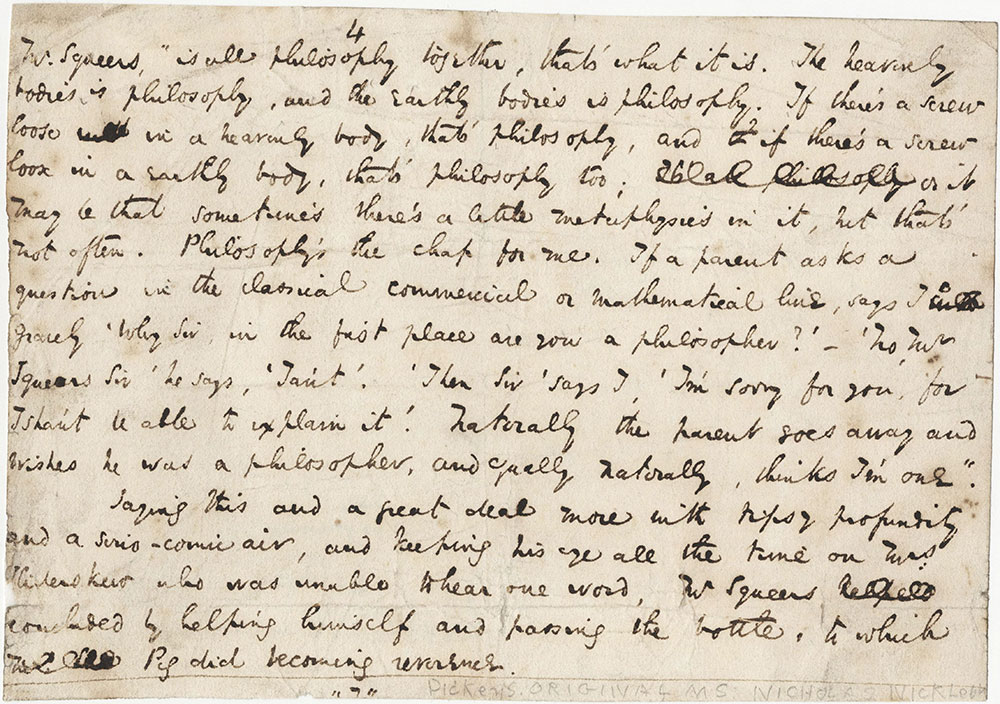 4
Mr. Squeers, "is all philosophy together, that's what it is. The heavenly
bodies is philosophy, and the Earthly bodies is philosophy. If there's a screw
loose in a heavenly body, that's philosophy, and if there's a screw
loose in a Earthly body, that's philosophy too; or it
may be that sometimes there's a little metaphysics in it, but that's
not often. Philosophy's the chap for me. If a parent asks a
question in the classical commercial or mathematical line, says I
gravely 'Why Sir, in the first place are you a philosopher?' – 'No, Mr
Squeers Sir' he says, 'I an't'. 'Then Sir' says I, 'I'm sorry for you, for
I shan't be able to explain it'. Naturally the parent goes away and
wishes he was a philosopher, and equally naturally, thinks I'm one".
Saying this and a great deal more with tipsy profundity
and a serio-comic air, and keeping his eye all the time on Mrs.
Sliderskew who was unable to hear one word, Mr Squeers helped
concluded by helping himself and passing the bottle, to which
Peg did becoming reverence.
"7"
Dickens. ORIGINAL MS. NICHOLAS NICKLEBY